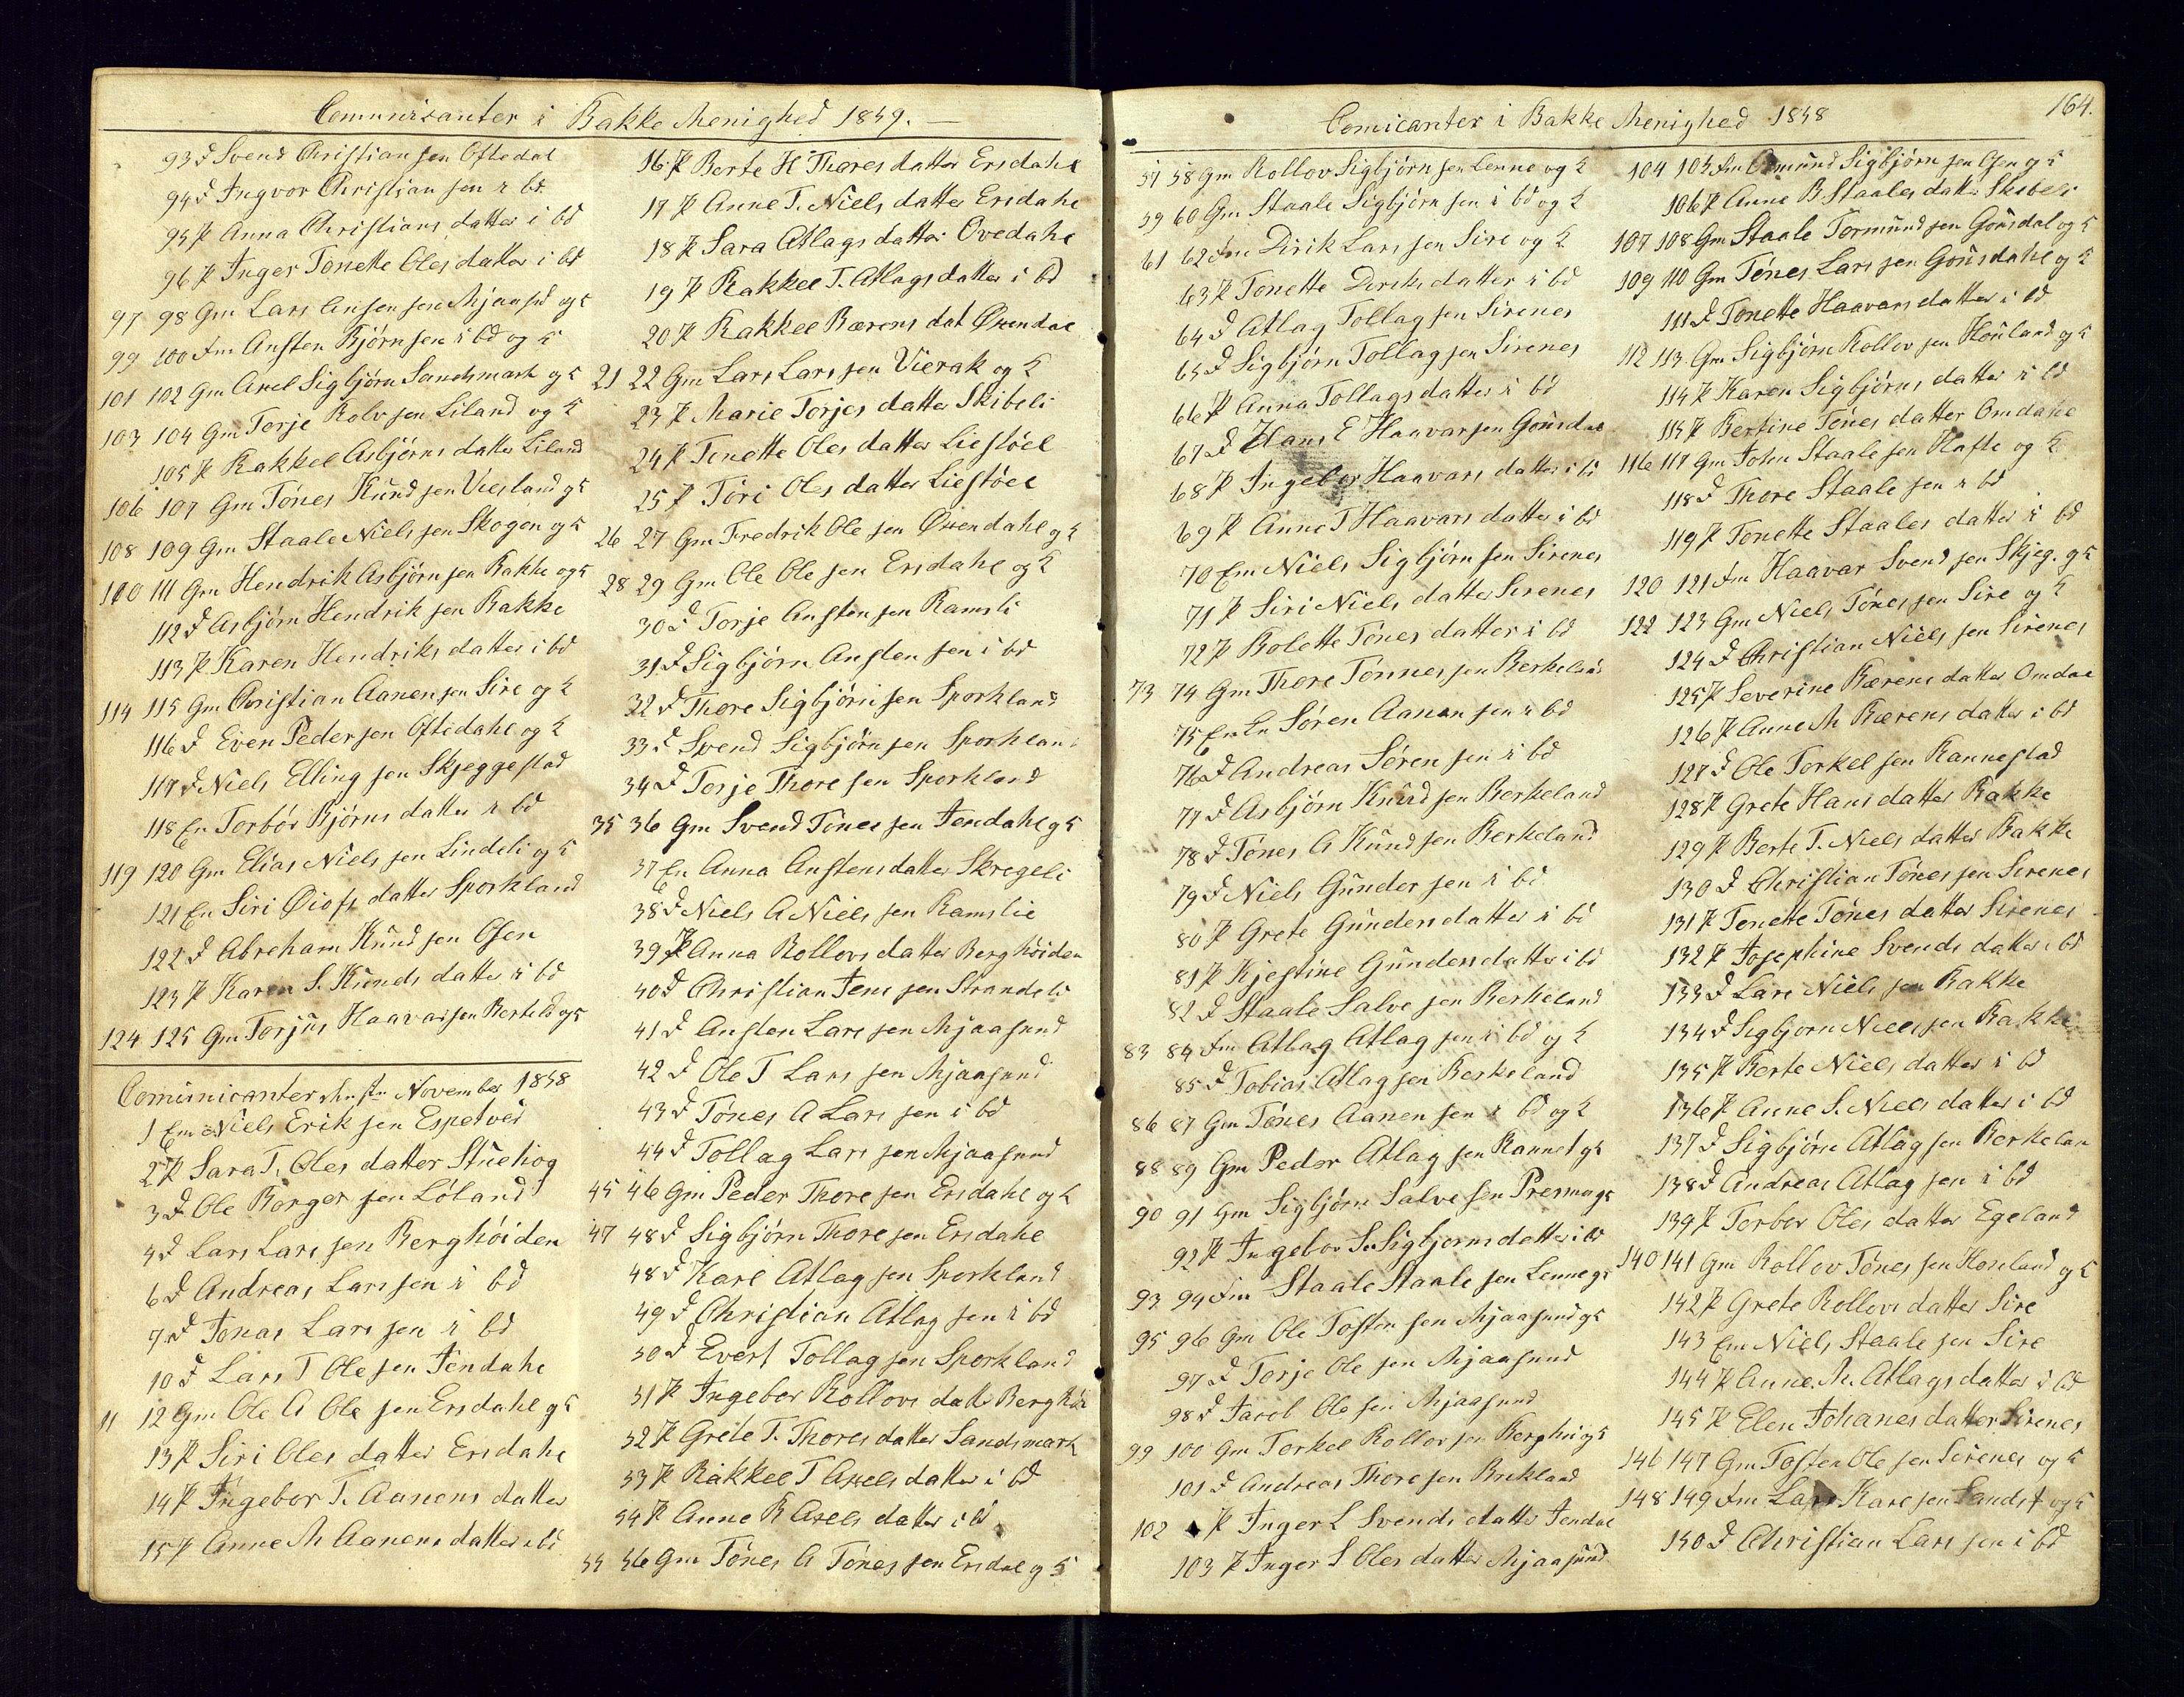 Communicanter i Bakke Menighed 1849.
93 D Svend Christian sen Oftedal
94 D Ingvor Christian sen i bd
95 P Anna Christians datter i bd
96 P Inger Tonette Oles datter i bd
97 98 Gm Lars Ansten sen Mjaasund og K
99 100 Fm Ansten Bjørn sen i bd og K
101 102 Gm Axel Sigbjørn Sandsmark og K
103 104 Gm Torje Rolv sen Liland og K
105 P Rakkel Asbjørns datter Liland
106 107 Gm Tønes Knud sen Viesland og K
108 109 Gm Staale Niels sen Skogen og K
110 111 Gm Hendrik Asbjørn sen Bakke og K
112 D Asbjørn Hendrik sen Bakke
113 P Karen Hendriks datter i bd
114 115 Gm Christian Aanen sen Sire og K
116 D Even Peder sen Oftedahl og K
117 D Niels Elling sen Skjeggestad
118 En Torbór Bjørns datter i bd
119 120 Gm Elias Niels sen Lindeli og K
121 En Siri datter Sporkland
122 D Abreham Knud sen Osen
123 P Karen S. Knuds datter i bd
124 125 Gm Torjus Haavar sen Berkeld og K
Comunicanter November 1848
1 Em Niels Erik sen Espetved
2 P Sara T. Oles datter Stuehog
3 D Ole Borger sen Lóland
4 D Lars Lars sen Berghóiden
6 D Andreas Lars sen i bd
7 D Jonas Lars sen i bd
10 D Lars T Ole sen Jendahl
11 12 Gm Ole A Ole sen Ersdahl og K
13 P Siri Oles datter Ersdahl
14 P Ingebor T. Aanens datter
15 P Anne M Aanens datter i bd
16 P Berte H Thores datter Ersdahl
17 P Anne T. Niels datter Ersdahl
18 P Sara Atlags datter Ovedahl
19 P Rakkel T. Atlags datter i bd
20 P Rakkel Bærens dat Øxendal
21 22 Gm Lars Lars sen Vierak og K
23 P Marie Torjes datter Skibeli
24 P Tonette Oles datter Liestóel
25 P Tóri Oles datter Liestóel
26 27 Gm Fredrik Ole sen Øxendahl og K
28 29 Gm Ole Ole sen Ersdahl og K
30 D Torje Ansten sen Ramsli
31 D Sigbjørn Ansten sen i bd
32 D Thore Sigbjørn sen Sporkland
33 D Svend Sigbjørn sen Sporkland
34 D Torje Thore sen Sporkland
35 36 Gm Svend Tønes sen Jendahl og K
37 En Anna Anstens datter Skregeli
38 D Niels A Niels sen Ramslie
39 P Anna Rollovs datter Berghóiden
40 D Christian Jens sen Strandeli
41 D Ansten Lars sen Mjaasund
42 D Ole T Lars sen Mjaasund
43 D Tónes A Lars sen i bd
44 D Tollag Lars sen Mjaasund
45 46 Gm Peder Thore sen Ersdahl og K
47 48 D Sigbjørn Thore sen Ersdahl
48 D Karl Atlag sen Sporkland
49 D Christian Atlag sen i bd
50 D Evert Tollag sen Sporkland
51 P Ingebor Rollovs datt Berghói
52 P Grete T. Thores datter Sandsmark
53 P Rakkel T Axels datter i bd
54 P Anne R Axels datter i bd
55 56 Gm Tónes A Tónes sen Ersdal og K
Comicanter i Bakke Menighed 1848
164.
57 58 Gm Rollov Sigbjørn sen Lenne og K
59 60 Gm Staale Sigbjørn sen i bd og K
61 62 Fm Dirik Lars sen Sire og K
63 P Tonette Diriks datter i bd
64 D Atlag Tollag sen Sirenes
65 D Sigbjørn Tollag sen Sirenes
66 P Anna Tollags datter i bd
67 D Hans E Haavar sen Gousdal
68 P Ingebor Haavars datter i bd
69 P Anne T Haavars datter i bd
70 Em Niels Sigbjørn sen Sirenes
71 P Siri Niels datter Sirenes
72 P Rolette Tónes datter i bd
73 74 Gm Thore Tonnes sen Berkeland
75 Em Søren Aanen sen i bd
76 D Andreas Søren sen i bd
77 D Asbjørn Knud sen Berkeland
78 D Tónes A Knud sen Berkeland
79 D Niels Gunder sen i bd
80 P Grete Gunders datter i bd
81 P Kjestine Gunders datter i bd
82 D Staale Salve sen Berkeland
83 84 Fm Atlag Atlag sen i bd og K
85 D Tobias Atlag sen Berkeland
86 87 Gm Tónes Aanen sen i bd og K
88 89 Gm Peder Atlag sen Rannest og K
90 91 Gm Sigbjørn Salve sen og K
92 P Ingebor S. Sigbjørns datter i bd
93 94 Fm Staale Staale sen Lenne og K
95 96 Gm Ole Tosten sen Mjaasund og K
97 D Torje Ole sen Mjaasund
98 D Jacob Ole sen Mjaasund
99 100 Gm Torkel Rollov sen Berghui og K
101 D Andreas Thore sen Birkland
102 P Inger L Svends datter Jendal
103 P Inger S Oles datter Mjaasund
104 105 Fm Omund Sigbjørn sen Osen og K
106 P Anne B Staales datter Skibeli
107 108 Gm Staale Tormund sen Gousdal og K
109 110 Gm Tónes Lars sen Gousdahl og K
111 D Tonette Haavars datter i bd
112 113 Gm Sigbjørn Rollov sen Houland og K
114 P Karen Sigbjørns datter i bd
115 P Bertine Tónes datter Omdahl
116 117 Gm John Staale sen Hafte og K
118 D Thore Staale sen i bd
119 P Tonette Staales datter i bd
120 121 Fm Haavar Svend sen Skjeg. og K
122 123 Gm Niels Tónes sen Sire og K
124 D Christian Niels sen Sirenes
125 P Severine Bærens datter Omdal
126 P Anne M Bærens datter i bd
127 D Ole Torkel sen Rannestad
128 P Grete Hans datter Bakke
129 P Berte T. Niels datter Bakke
130 D Christian Tónes sen Sirenes
131 P Tonette Tónes datter Sirenes
132 P Josephine Svends datter i bd
133 D Lars Niels sen Bakke
134 D Sigbjørn Niels sen Bakke
135 P Berte Niels datter i bd
136 P Anne S. Niels datter i bd
137 D Sigbjørn Atlag sen Berkelan
138 D Andreas Atlag sen i bd
139 P Torbor Oles datter Egeland
140 141 Gm Rollov Tónes sen Haneland og K
142 P Grete Rollovs datter Sire
143 Em Niels Staale sen Sire
144 P Anne M. Atlags datter i bd
145 P Elen Johanes datter Sirenes
146 147 Gm Tosten Ole sen Sirenes og K
148 149 Fm Lars Karl sen Sandst og K
150 D Christian Lars sen i bd